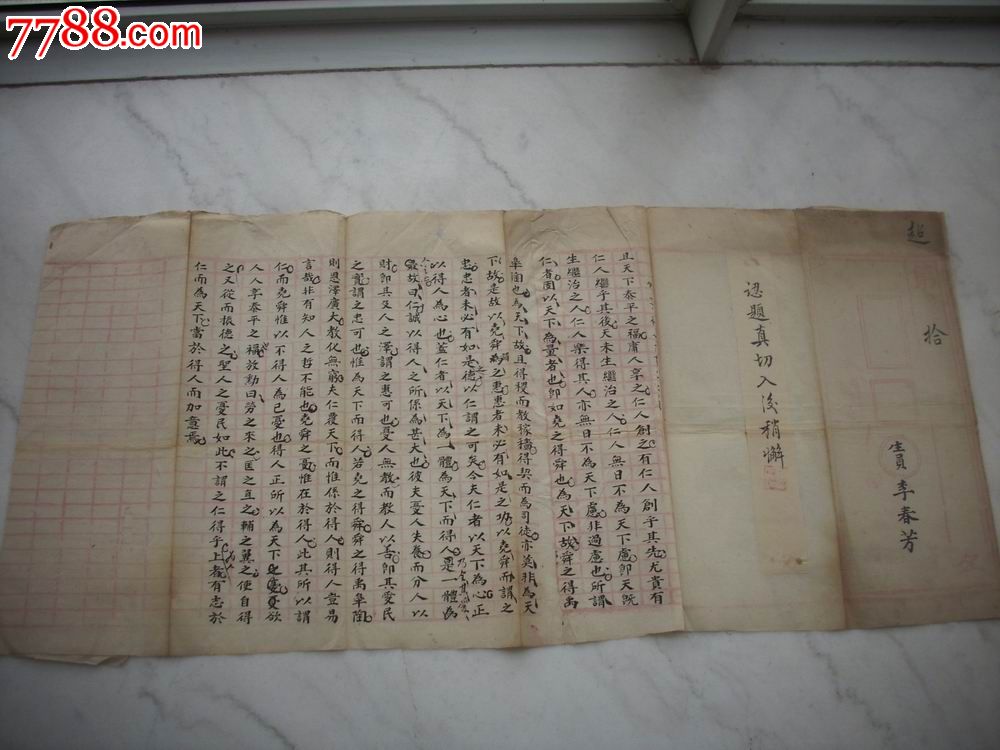 7788.com
超
拾
生員李春芳
認題真切入後稍懈
且天下泰平之福庸人享之仁人創之有仁人創乎其先尤貴有
仁人繼乎其後天未生繼治之仁人無日不為天下慮即天既
生繼治之人仁人樂得其人亦無日不為天下慮非過慮也所謂
仁者固以天下為量者也即如堯之得舜也為天下故舜之得禹
皋陶也為天下故且得稷而教稼穡得契而為司徒亦莫非為天
下故是故以堯舜為惠惠者未必有如是之功以堯舜而謂之
忠忠者未必有如是德以仁謂之可矣今夫仁者以天下為心正
以得人為心也蓋仁者以天下為一體為天下而得人
故曰仁誠以得人之所係為甚大也彼夫憂人失養而分人以
財即其又人之澤謂之惠可也憂人無教而教人以善即其愛民
之實謂之忠可也惟為天下而得人若堯之得舜舜之得禹皋陶
則恩澤廣大教化無窮夫仁覆天下而惟係於得人則得人豈易
言哉非有知人之哲不能也堯舜之憂惟在於得人此其所以謂
仁而堯舜惟以不得人為己憂也得人正所以為天下之憂欲
人人享泰平之福放勳曰勞之來之匡之直之輔之翼之使自得
之又從而振德之聖人之憂民如此不謂之仁得乎上者有志於
仁而為天下當於得人而加意焉